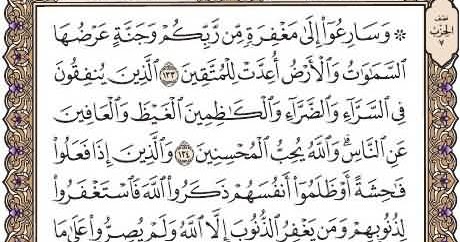 نصف
الحزب
٧
۞ وَسَارِعُوٓا۟ إِلَىٰ مَغْفِرَةٍ مِّن رَّبِّكُمْ وَجَنَّةٍ عَرْضُهَا
ٱلسَّمَـٰوَٰتُ وَٱلْأَرْضُ أُعِدَّتْ لِلْمُتَّقِينَ ١٣٣ ٱلَّذِينَ يُنفِقُونَ
فِى ٱلسَّرَّآءِ وَٱلضَّرَّآءِ وَٱلْكَـٰظِمِينَ ٱلْغَيْظَ وَٱلْعَافِينَ
عَنِ ٱلنَّاسِ ۗ وَٱللَّهُ يُحِبُّ ٱلْمُحْسِنِينَ ١٣٤ وَٱلَّذِينَ إِذَا فَعَلُوا۟
فَـٰحِشَةً أَوْ ظَلَمُوٓا۟ أَنفُسَهُمْ ذَكَرُوا۟ ٱللَّهَ فَٱسْتَغْفَرُوا۟
لِذُنُوبِهِمْ وَمَن يَغْفِرُ ٱلذُّنُوبَ إِلَّا ٱللَّهُ وَلَمْ يُصِرُّوا۟ عَلَىٰ مَا